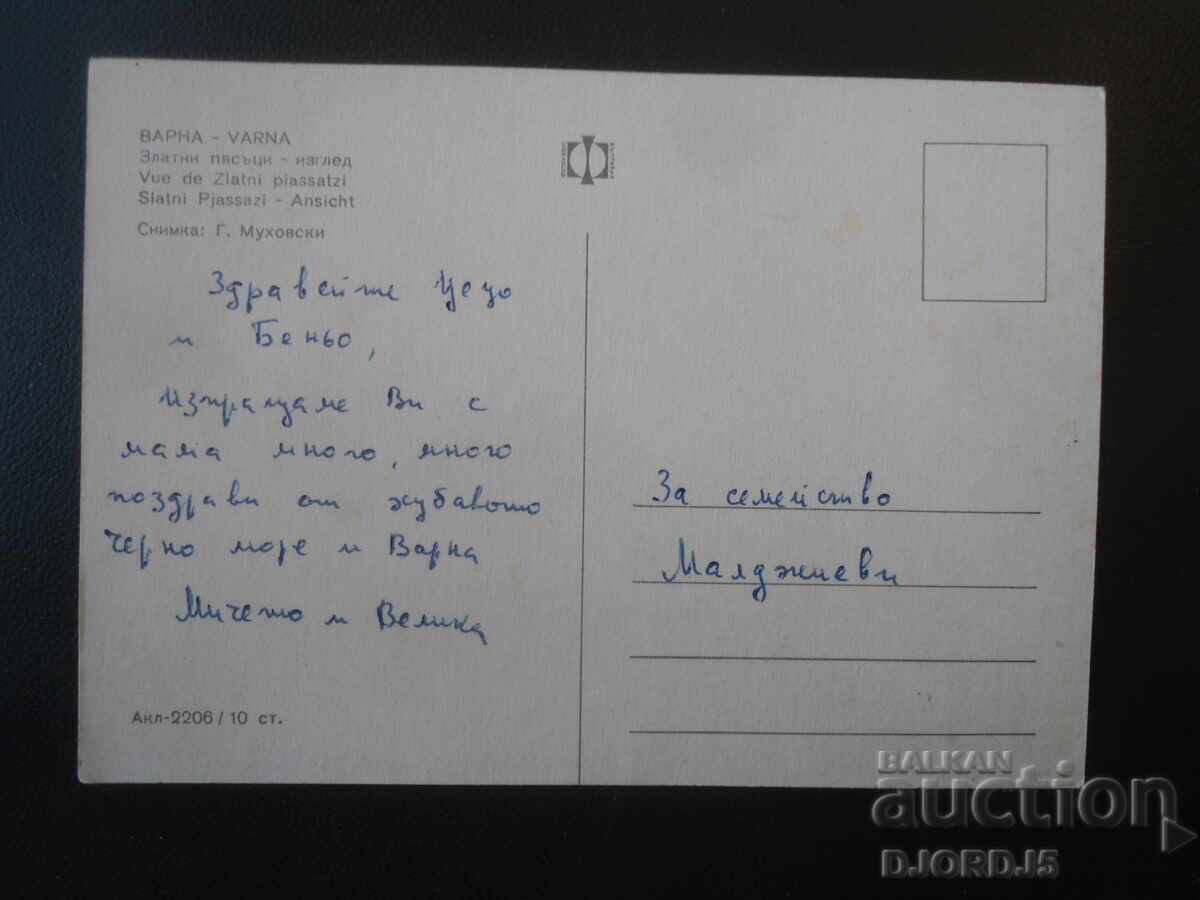 ВАРНА - VARNA
Златни пясъци - изглед
Vue de Zlatni piassatzi
Slatni Pjassazi - Ansicht
Снимка: Г. Муховски
Здравейте Цецо
и Беньо,
Изпращаме Ви с
мама много, много
поздрави от хубавото
Черно море и Варна
Мичето и Велика
Акл-2206/10 ст.
За семейство
Малджиеви
BALKAN
auction
DJORDJ5